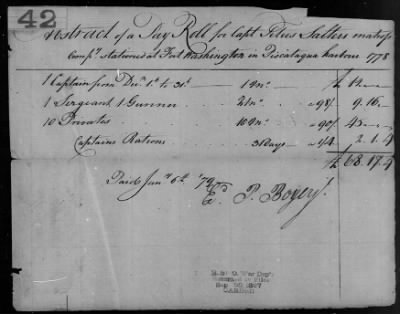 42
Abstract of a Pay Roll for Capt Titus Salters matross
Comp.y stationed at Fort Washington in Piscataqua harbour 1778
1 Captain from Dec.r 1.st to 31.st 1 m.o £ 12
1 Sergeant, 1 Gunner 2 m.o 98/ 9.16
10 Privates 10 m.o 90/ 45
Captains Rations 31 Days 1/4 2.1.4
£ 68.17.4
Paid Jan.y 6.th 1779
E. P. Boyers
R. & P. War Dep't
Sep 1897